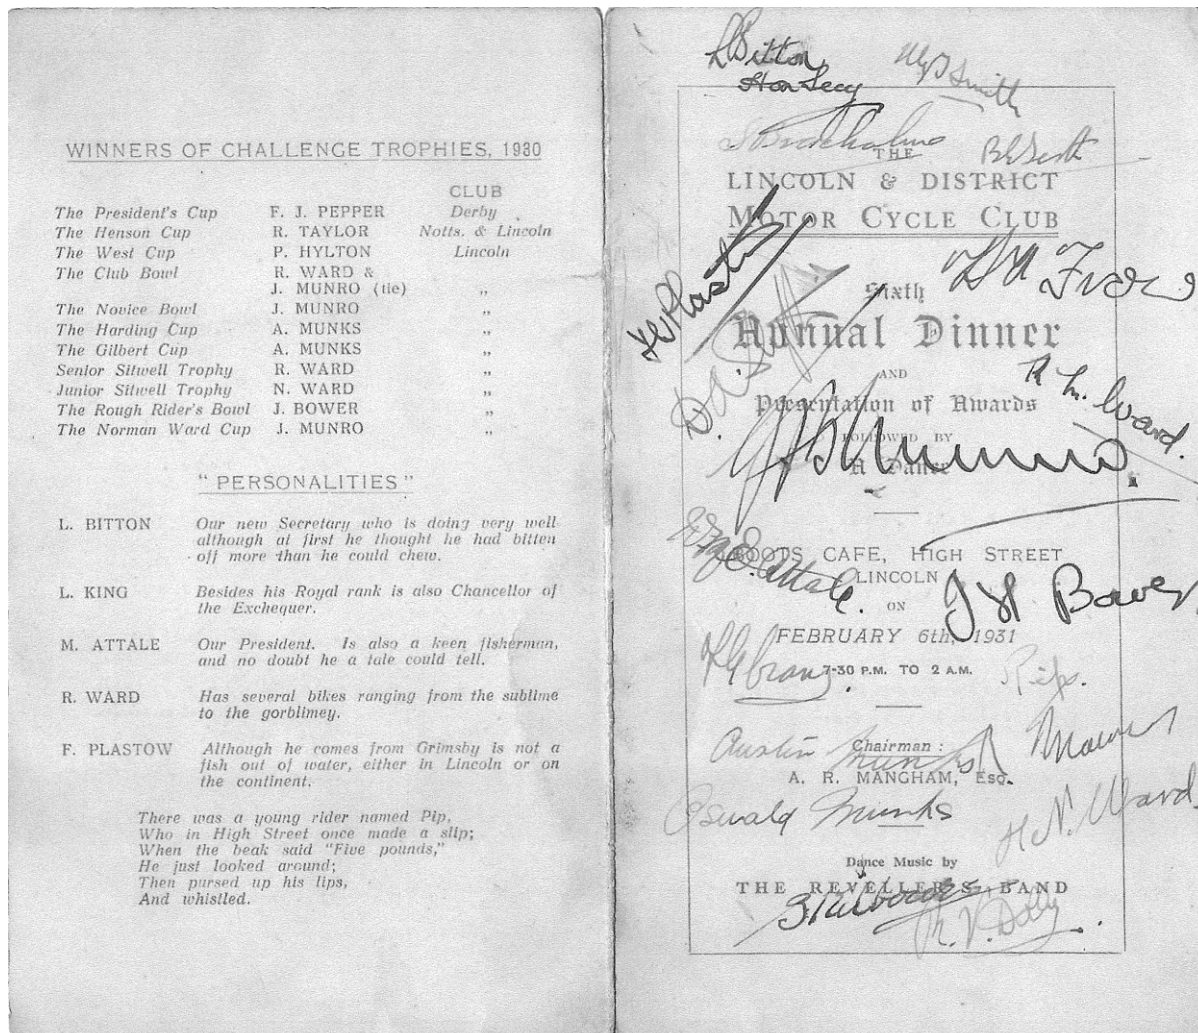 WINNERS OF CHALLENGE TROPHIES, 1930
CLUB
The President's Cup F. J. PEPPER Derby
The Henson Cup R. TAYLOR Notts. & Lincoln
The West Cup P. HYLTON Lincoln
The Club Bowl R. WARD &
J. MUNRO (tie) „
The Novice Bowl J. MUNRO „
The Harding Cup A. MUNKS „
The Gilbert Cup A. MUNKS „
Senior Sitwell Trophy R. WARD „
Junior Sitwell Trophy N. WARD „
The Rough Rider's Bowl J. BOWER „
The Norman Ward Cup J. MUNRO „
"PERSONALITIES"
L. BITTON Our new Secretary who is doing very well
although at first he thought he had bitten
off more than he could chew.
L. KING Besides his Royal rank is also Chancellor of
the Exchequer.
M. ATTALE Our President. Is also a keen fisherman,
and no doubt he a tale could tell.
R. WARD Has several bikes ranging from the sublime
to the gorblimey.
F. PLASTOW Although he comes from Grimsby is not a
fish out of water, either in Lincoln or on
the continent.
There was a young rider named Pip,
Who in High Street once made a slip;
When the beak said "Five pounds,"
He just looked around;
Then pursed up his lips,
And whistled.
L Bitton
Hon Secy
Smith
THE
LINCOLN & DISTRICT
MOTOR CYCLE CLUB
Sixth
Annual Dinner
AND
R M. Ward.
Presentation of Awards
FOLLOWED BY
Munro
A Dance
BOOTS CAFE, HIGH STREET
LINCOLN
Attale.
ON
J H Bower
FEBRUARY 6th, 1931
7-30 P.M. TO 2 A.M.
Austin Munks
Chairman:
A. R. MANGHAM, Esq.
Oswald Munks
H. N. Ward.
Dance Music by
THE REVELLERS BAND